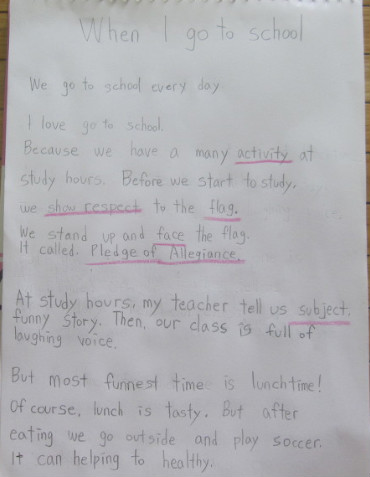 When I go to school
We go to school every day
I love go to school.
Because we have a many activity at
study hours. Before we start to study,
we show respect to the flag.
We stand up and face the flag.
It called. Pledge of Allegiance.
At study hours, my teacher tell us subject,
funny story. Then, our class is full of
laughing voice.
But most funnest time is lunchtime!
Of course, lunch is tasty. But after
eating we go outside and play soccer.
It can helping to healthy.